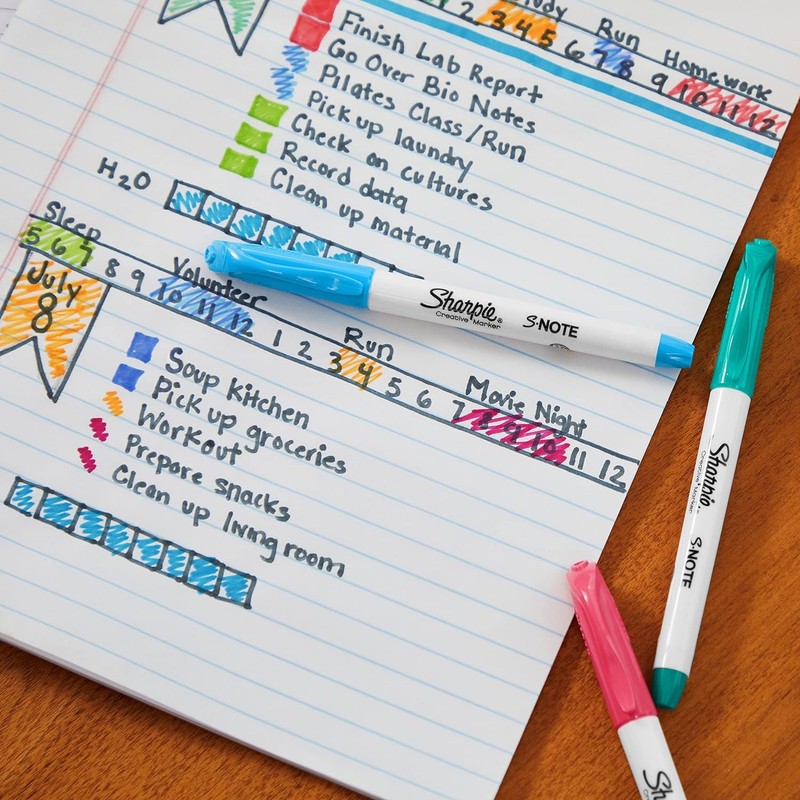 Study Run Homework
2 3 4 5 6 7 8 9 10 11 12
Finish Lab Report
Go Over Bio Notes
Pilates Class/Run
Pick up laundry
Check on cultures
Record data
Clean up material
H2O
Sleep Volunteer Run Movie Night
5 6 7 8 9 10 11 12 1 2 3 4 5 6 7 8 9 10 11 12
July
8
Soup Kitchen
Pick up groceries
Workout
Prepare snacks
Clean up living room
Sharpie®
Creative Marker
S·NOTE
Sharpie®
Creative Marker
S·NOTE
Sh